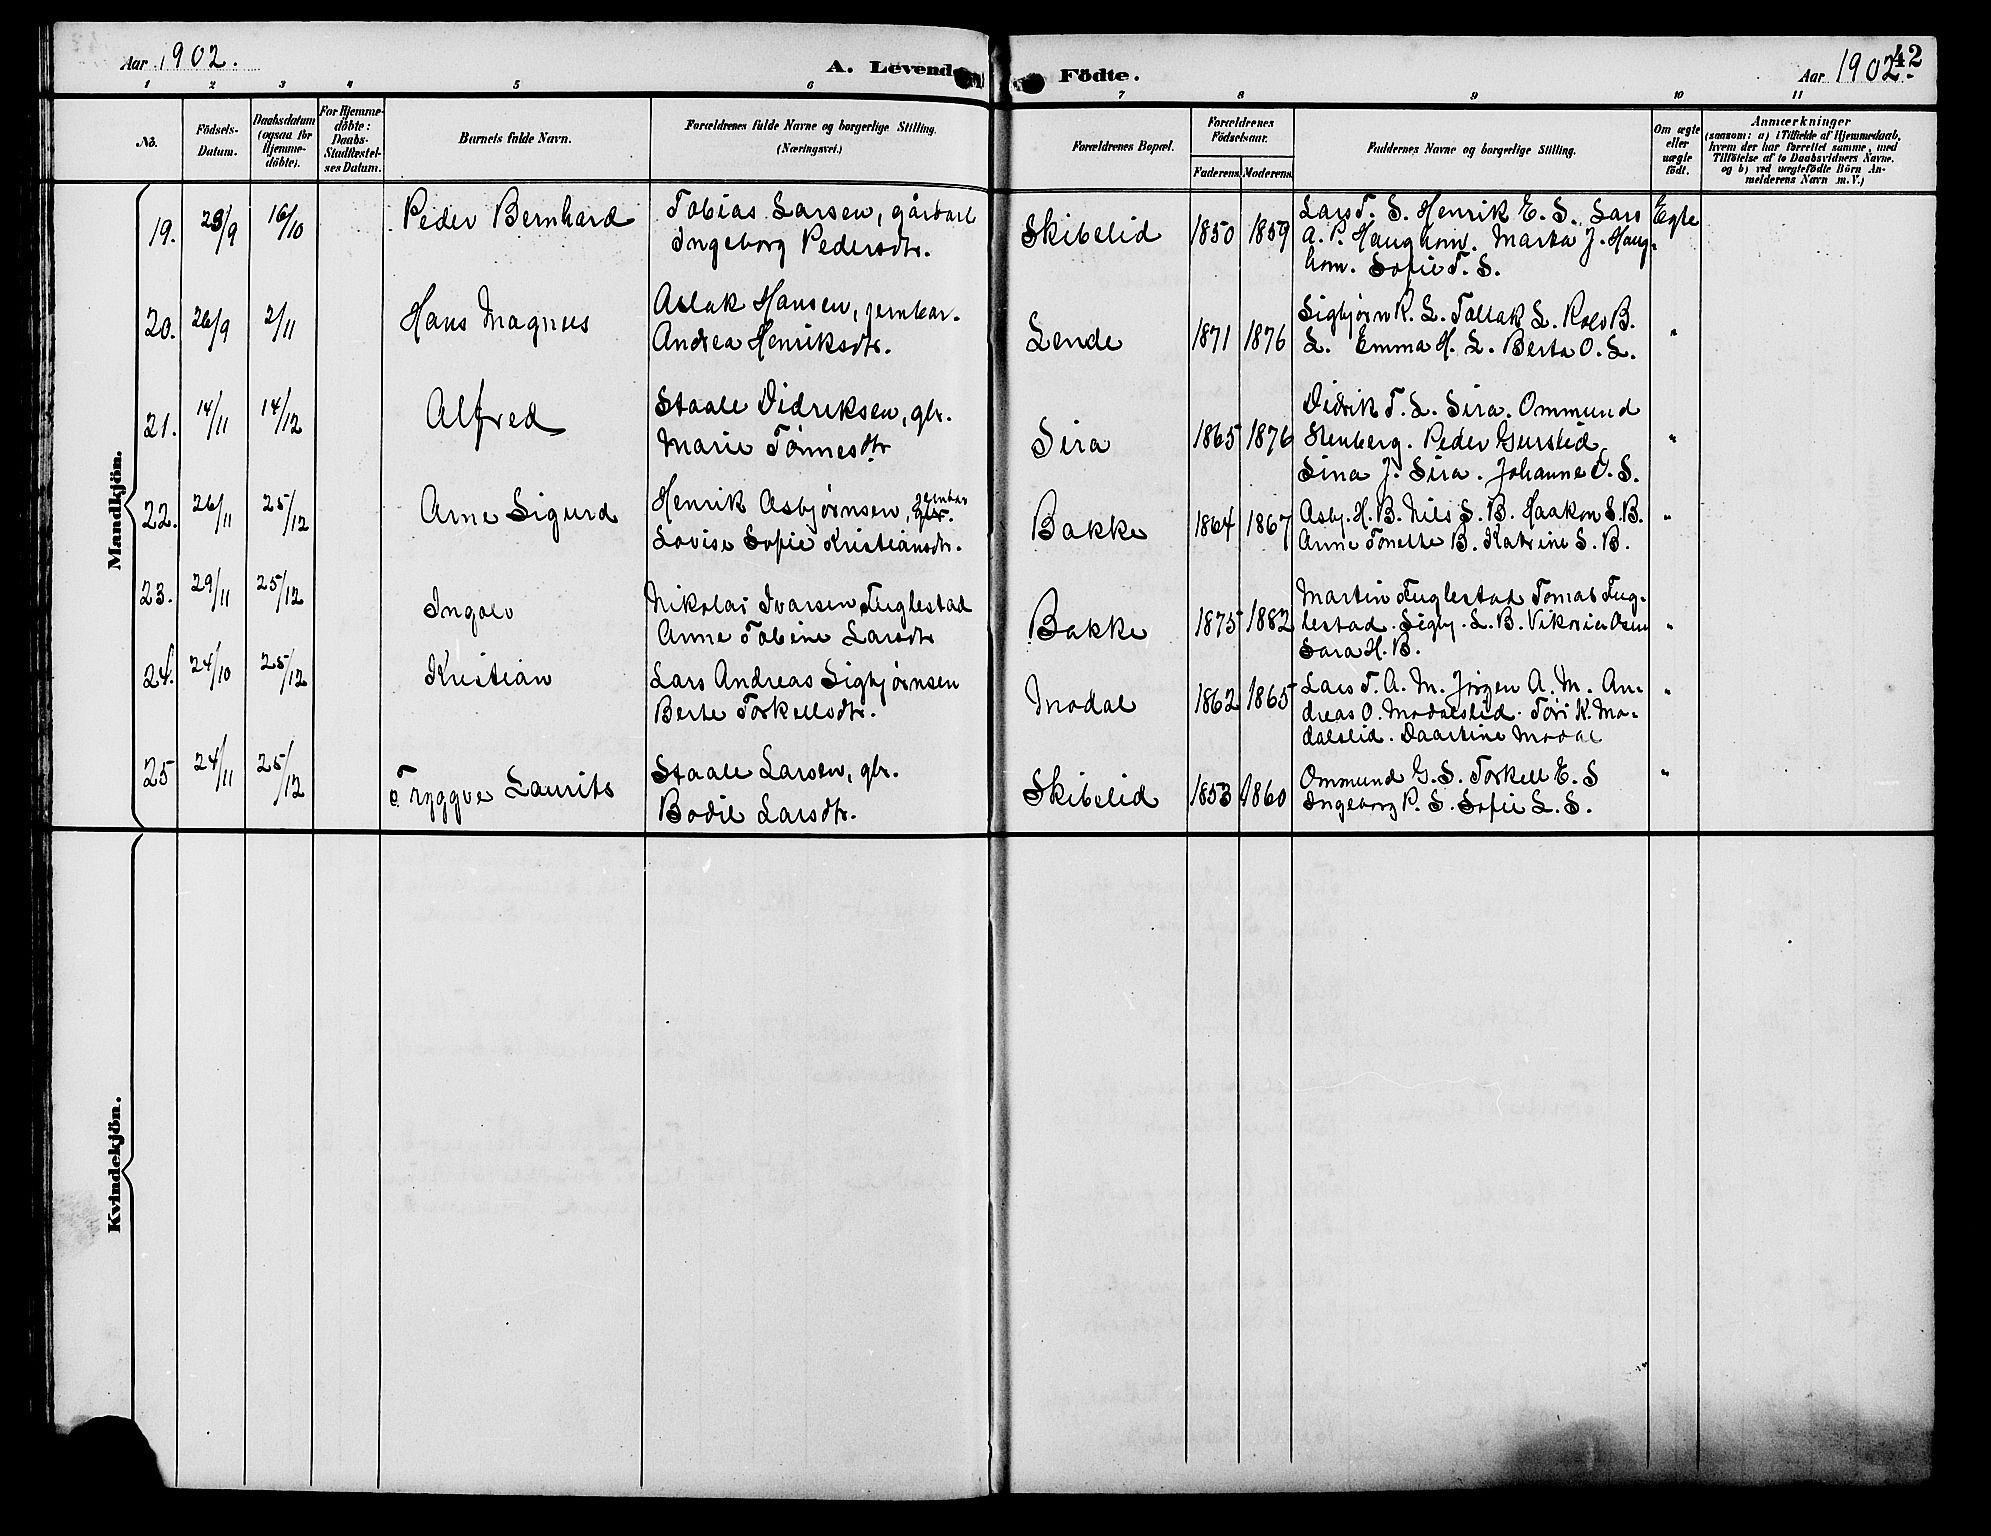 Aar 1902.
A. Levende Födte.
Aar 1902.
42
1 2 3 4 5 6 7 8 9 10 11
No.
Födsels-
Datum.
Daabsdatum
(ogsaa for
Hjemme-
döbte).
For Hjemme-
döbte:
Daabs-
Stadfæstel-
ses Datum.
Barnets fulde Navn.
Forældrenes fulde Navne og borgerlige Stilling.
(Næringsvei.)
Forældrenes Bopæl.
Forældrenes
Födselsaar.
Faderens. Moderens.
Faddernes Navne og borgerlige Stilling.
Om ægte
eller
uægte
födt.
Anmærkninger
(saasom: a) i Tilfælde af Hjemmedaab,
hvem der har forrettet samme, med
Tilföielse af to Daabsvidners Navne.
og b) ved uægtefödte Börn An-
melderens Navn m. V.)
Mandkjön.
19. 23/9 16/10 Peder Bernhard
Tobias Larsen, gårbarl
Ingeborg Pedersdtr.
Skibelid 1850 1859
Lars T. S. Henrik E. S. Lars
A. P. Haughom. Marta J. Haug-
hom. Sofie T. S.
Egte
20. 26/9 2/11 Hans Magnus
Aslak Hansen, jernbar.
Andrea Henriksdtr.
Lende 1871 1876
Sigbjørn R. L. Tallak L. Rolv B.
L. Emma H. L. Berta O. L.
"
21. 14/11 14/12 Alfred
Staale Didriksen, gbr.
Marie Tønnesdtr
Sira 1865 1876
Didrik T. L. Sira. Ommund
Stenberg. Peder Gursled
Sina J. Sira. Johanne S.
"
22. 26/11 25/12 Arne Sigurd
Henrik Asbjørnsen, jernbar
Lovise Sofie Kristiansdtr.
Bakke 1864 1867
Asbj. H. B. Nils S. B. Haakon S. B.
Anne Tonette B. Katrine S. B.
"
23. 29/11 25/12 Ingolv
Nikolai Ivarsen Fuglestad
Anne Tobine Larsdtr
Bakke 1875 1882
Martin Fuglestad Tomas Fug-
lestad. Sigbj. L. B. Viktoria Osen
Sara H. B.
"
24. 24/10 25/12 Kristian
Lars Andreas Sigbjørnsen
Berte Torkellsdtr.
Modal 1862 1865
Lars T. A. M. Jørgen A. M. An-
dreas O. Modalslid. Tori K. Mo-
dalslid. Daartine Modal
"
25 24/11 25/12 Tryggve Laurits
Staale Larsen, gbr.
Bodil Larsdtr.
Skibelid 1853 1860
Ommund G. S. Torkell E. S
Ingeborg P. S. Sofie L. S.
"
Kvindekjön.